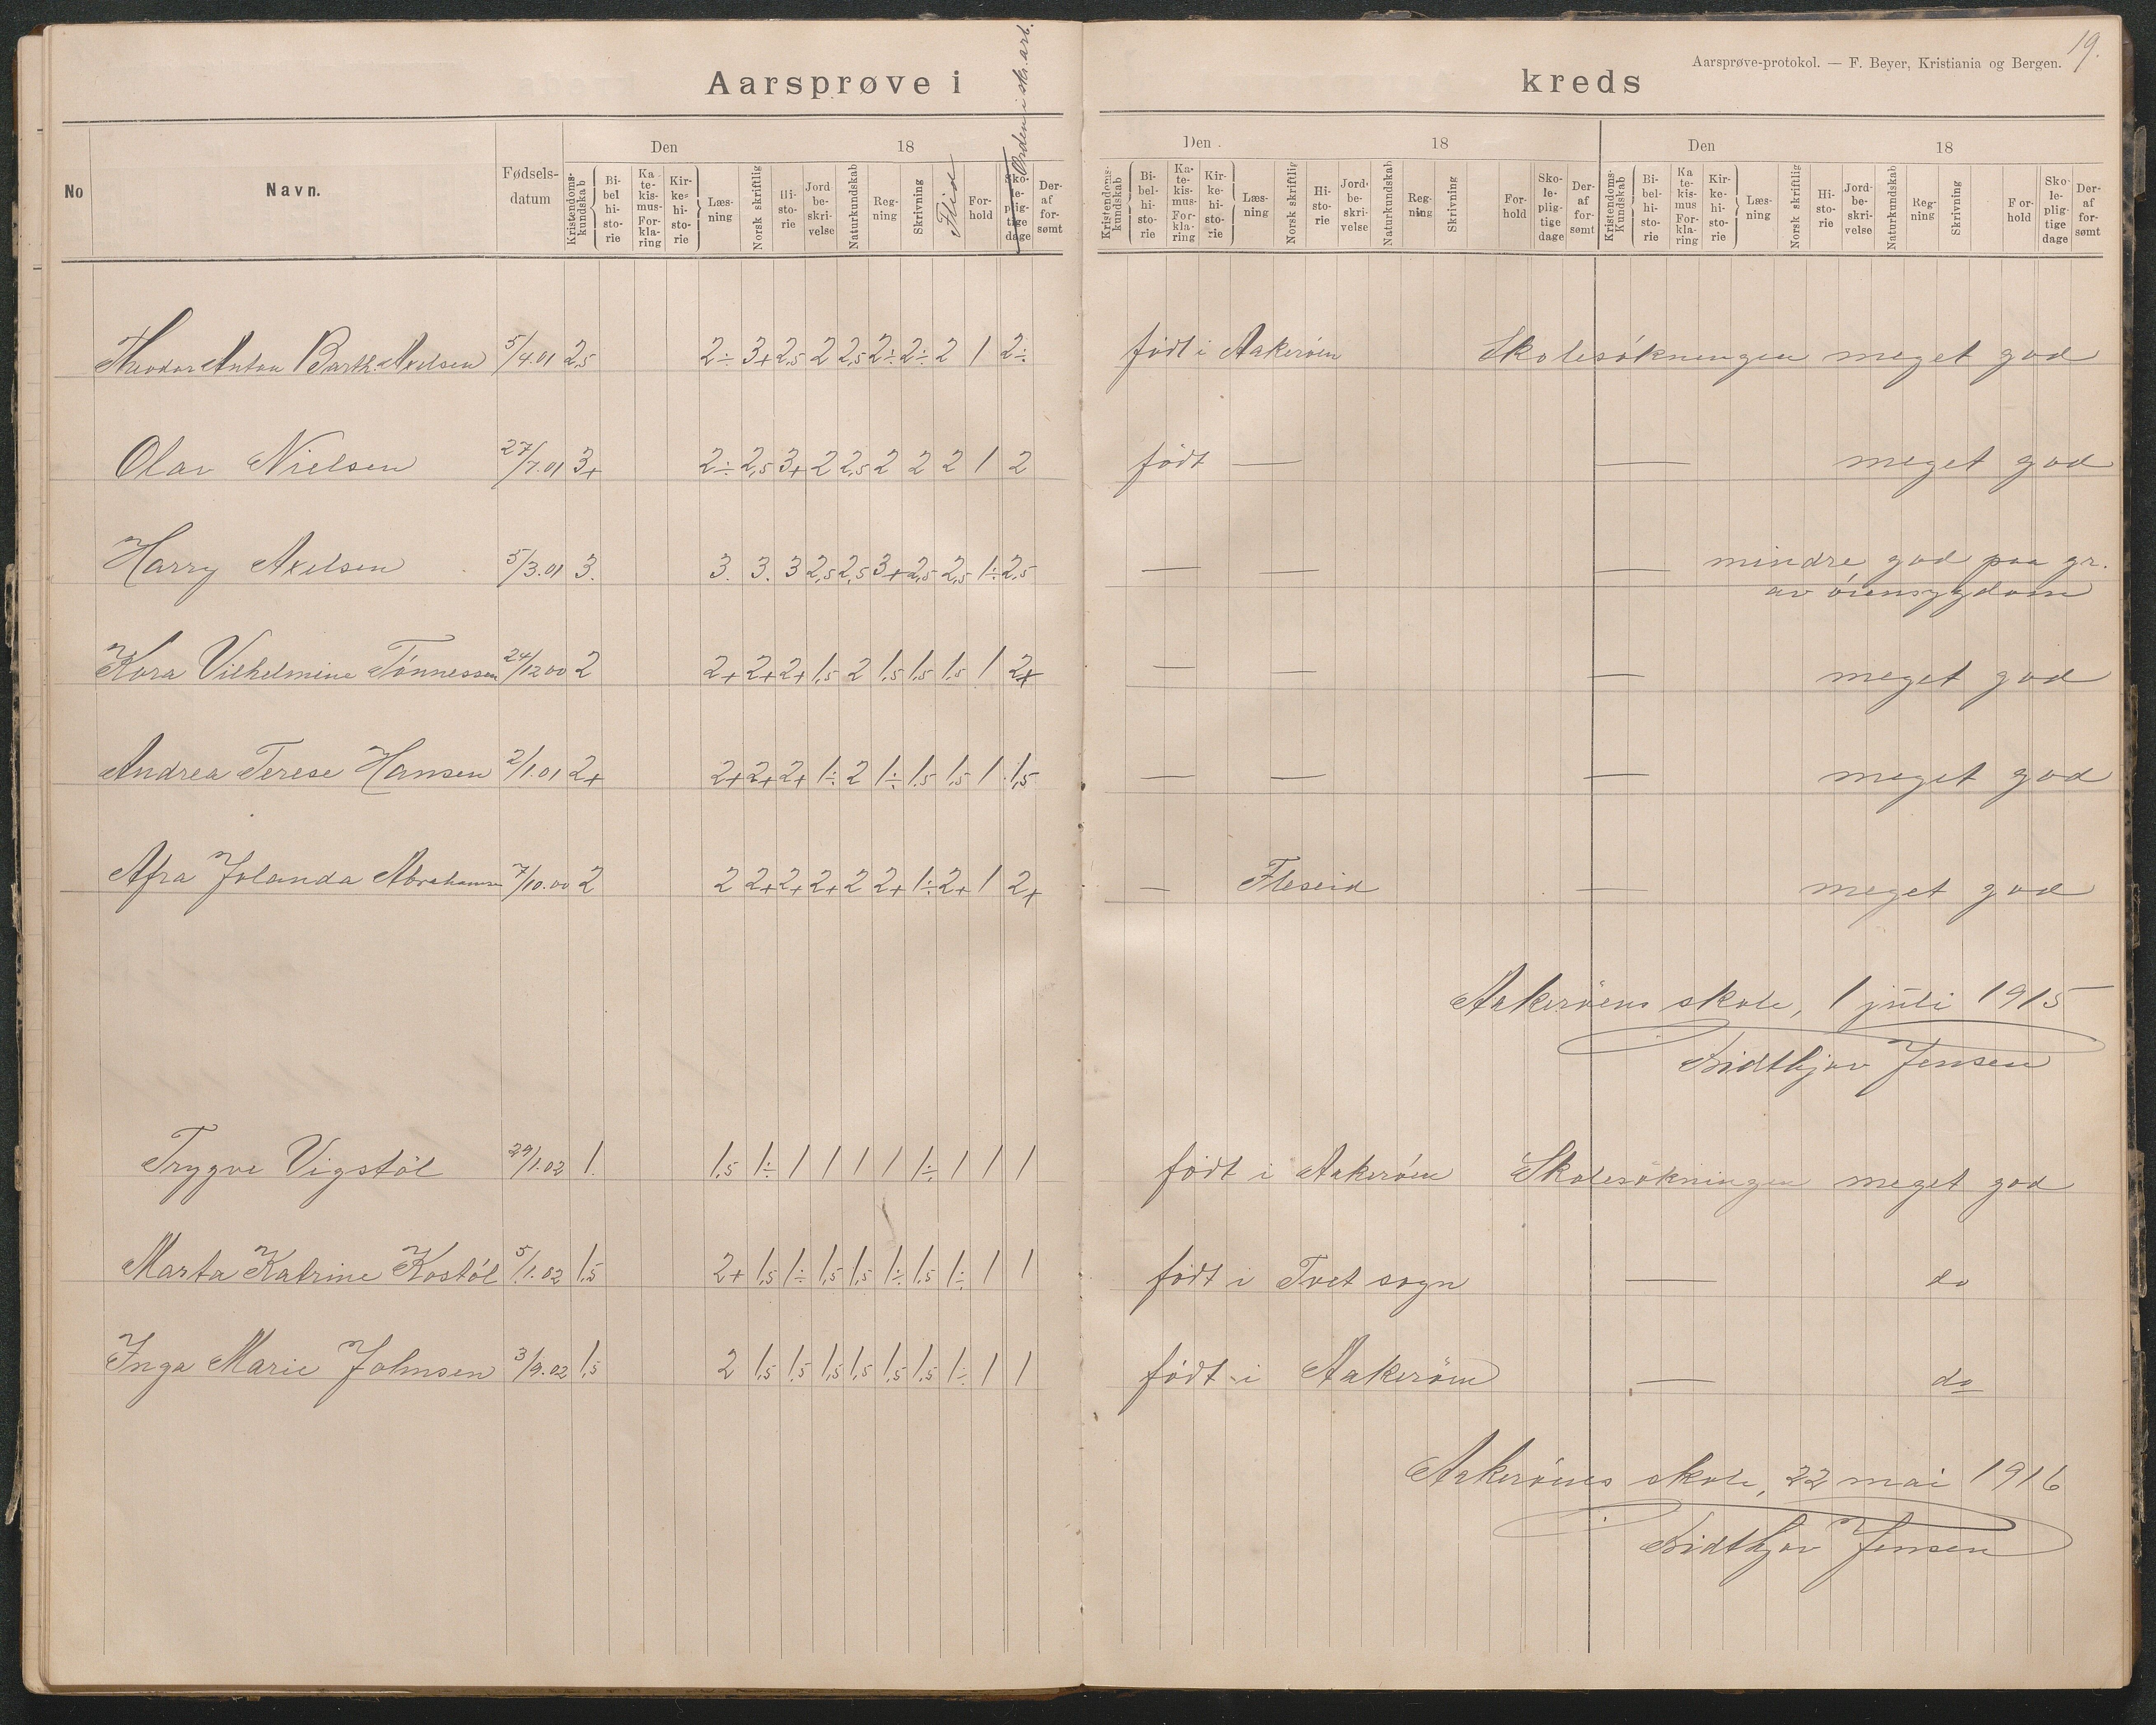 19.
Aarsprøve-protokol. — F. Beyer, Kristiania og Bergen.
Aarsprøve i kreds
No Navn. Fødsels-datum Den 18 Den 18 Den 18
Kristendoms-kundskab Bibelhistorie Katekismus-Forklaring Kirkehistorie Læsning Norsk skriftlig Historie Jordbeskrivelse Naturkundskab Regning Skrivning Flid Forhold Skolepligtige dage Orden i skr. arb. Deraf forsømt
Kristendoms-kundskab Bibelhistorie Katekismus-Forklaring Kirkehistorie Læsning Norsk skriftlig Historie Jordbeskrivelse Naturkundskab Regning Skrivning Forhold Skolepligtige dage Deraf forsømt
Kristendoms-Kundskab Bibelhistorie Katekismus Forklaring Kirkehistorie Læsning Norsk skriftlig Historie Jordbeskrivelse Naturkundskab Regning Skrivning Forhold Skolepligtige dage Deraf forsømt
Theodor Anton Barth. Axelsen 5/4.01 2,5 2÷ 3+ 2,5 2 2,5 2÷ 2÷ 2 1 2÷ født i Aakerøen Skolesøkningen meget god
Olav Nielsen 27/7.01 3+ 2÷ 2,5 3+ 2 2,5 2 2 2 1 2 født — — meget god
Harry Axelsen 5/3.01 3. 3. 3. 3 2,5 2,5 3+ 2,5 2,5 1÷ 2,5 — — — mindre god paa gr.
av øiensygdom
Kora Vilhelmine Tønnessen 24/12 00 2 2+ 2+ 2+ 1,5 2 1,5 1,5 1,5 1 2+ — — — meget god
Andrea Terese Hansen 2/1.01 2+ 2+ 2+ 2+ 1÷ 2 1÷ 1,5 1,5 1 1,5 — — — meget god
Afra Jolanda Abrahamsen 7/10.00 2 2 2+ 2+ 2+ 2 2+ 1÷ 2+ 1 2+ — Fleseid — meget god
Aakerøens skole, 1 juli 1915
Fridthjov Jensen
Trygve Vigstøl 29/1.02 1. 1,5 1÷ 1 1 1 1 1÷ 1 1 1 født i Aakerøen Skolesøkningen meget god
Marta Katrine Kostøl 5/1.02 1,5 2+ 1,5 1÷ 1,5 1,5 1÷ 1,5 1÷ 1 1 født i Tvet sogn — do
Inga Marie Johnsen 3/9.02 1,5 2 1,5 1,5 1,5 1,5 1,5 1,5 1÷ 1 1 født i Aakerøen — do
Aakerøens skole, 22 mai 1916
Fridthjov Jensen